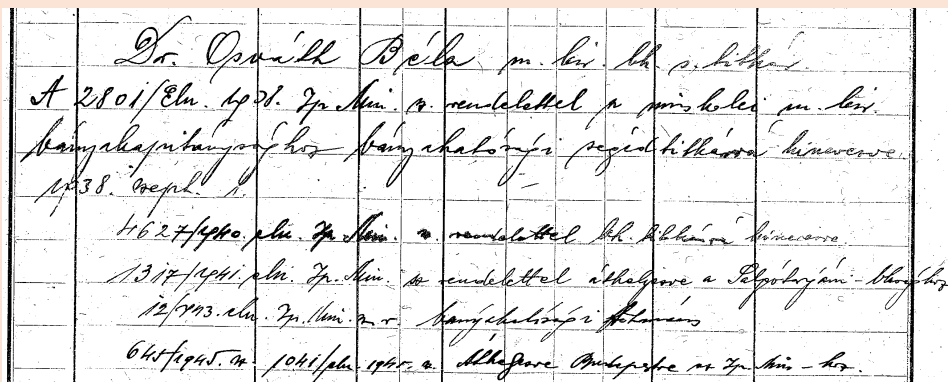 Dr. Osváth Béla m. kir. bh. s. titkár.
A 2801/Eln. 1938. Ip. Min. sz. rendelettel a miskolci m. kir.
bányakapitánysághoz bányahatósági segédtitkárrá kinevezve.
1938. szept. 1.
4627/1940. eln. Ip. Min. sz. rendelettel bh. titkárrá kinevezve
1317/1941. eln. Ip. Min. sz rendelettel áthelyezve a Salgótarjáni-
12/943. eln. Ip. Min. sz. r. bányahatósági
645/1945. sz. 1041/eln. 1945. sz. Áthelyezve Budapestre az Ip. Min-hoz.